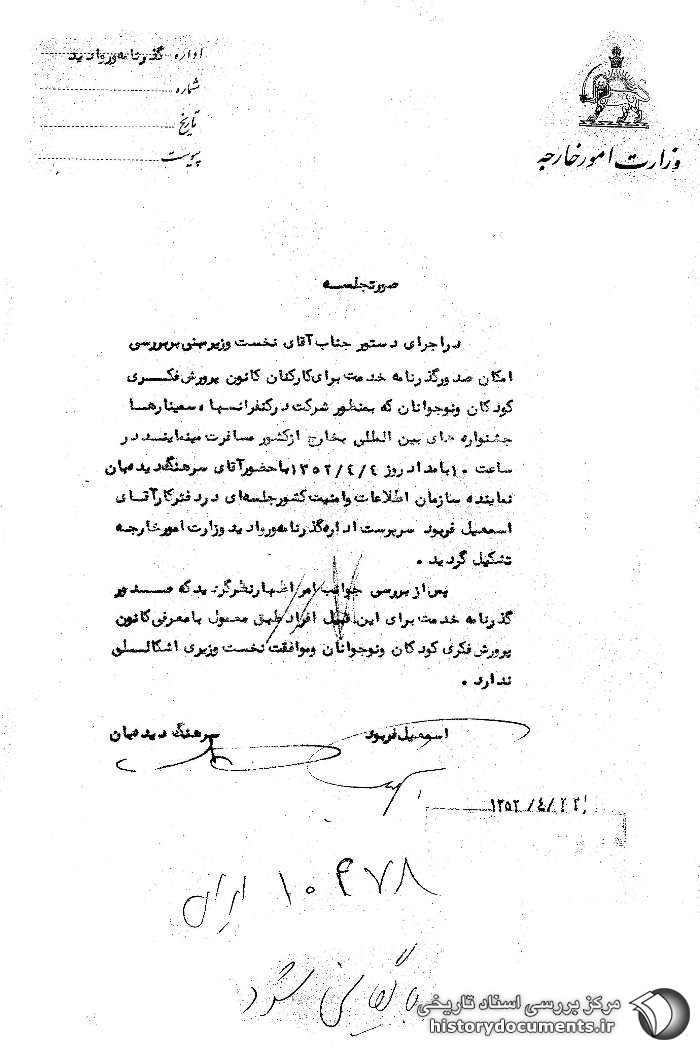 وزارت امور خارجه
اداره گذرنامه وروادید
شماره
تاریخ
پیوست
صورتجلسه
دراجرای دستور جناب آقای نخست وزیر مبنی بر بررسی
امکان صدورگذرنامه خدمت برای کارکنان کانون پرورش فکری
کودکان ونوجوانان که بمنظور شرکت درکنفرانسها ، سمینارها
جشنواره های بین المللی بخارج ازکشور مسافرت مینمایند در
ساعت ۱۰ بامداد روز ۱۳۵۲/۴/۴ باحضورآقای سرهنگ دیده بان
نماینده سازمان اطلاعات وامنیت کشورجلسه‌ای دردفترکارآقای
اسمعیل فربود سرپرست اداره گذرنامه وروادید وزارت امورخارجه
تشکیل گردید .
پس از بررسی جوانب امر اظهارنظرگردیدکه صدور
گذرنامه خدمت برای این قبیل افراد طبق معمول بامعرفی کانون
پرورش فکری کودکان ونوجوانان وموافقت نخست وزیری اشکالی
ندارد .
اسمعیل فربود
سرهنگ دیده بان
۱۳۵۲/۴/
بایگانی شود
مرکز بررسی اسناد تاریخی
historydocuments.ir